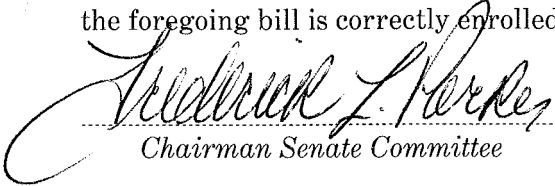 the foregoing bill is correctly enrolled
Frederick L. Parker
Chairman Senate Committee